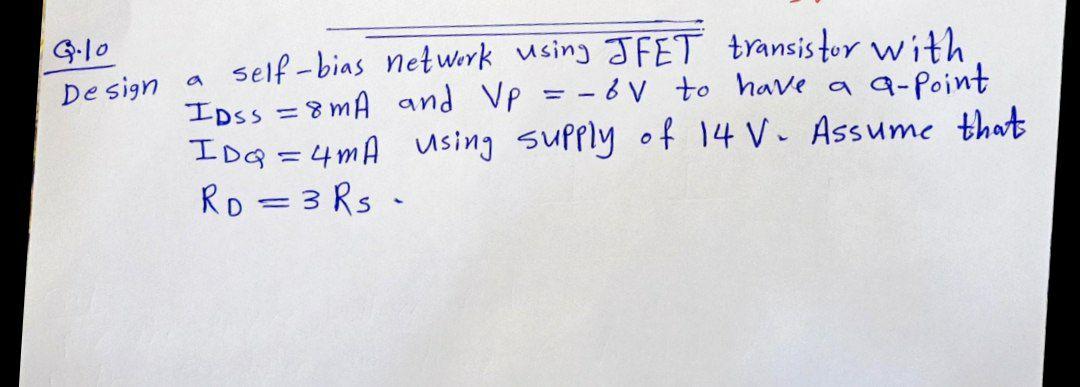 Q.10
Design a self-bias network using JFET transistor with
IDSS = 8mA and VP = -6V to have a Q-Point
IDQ = 4mA using supply of 14 V. Assume that
RD = 3 RS.